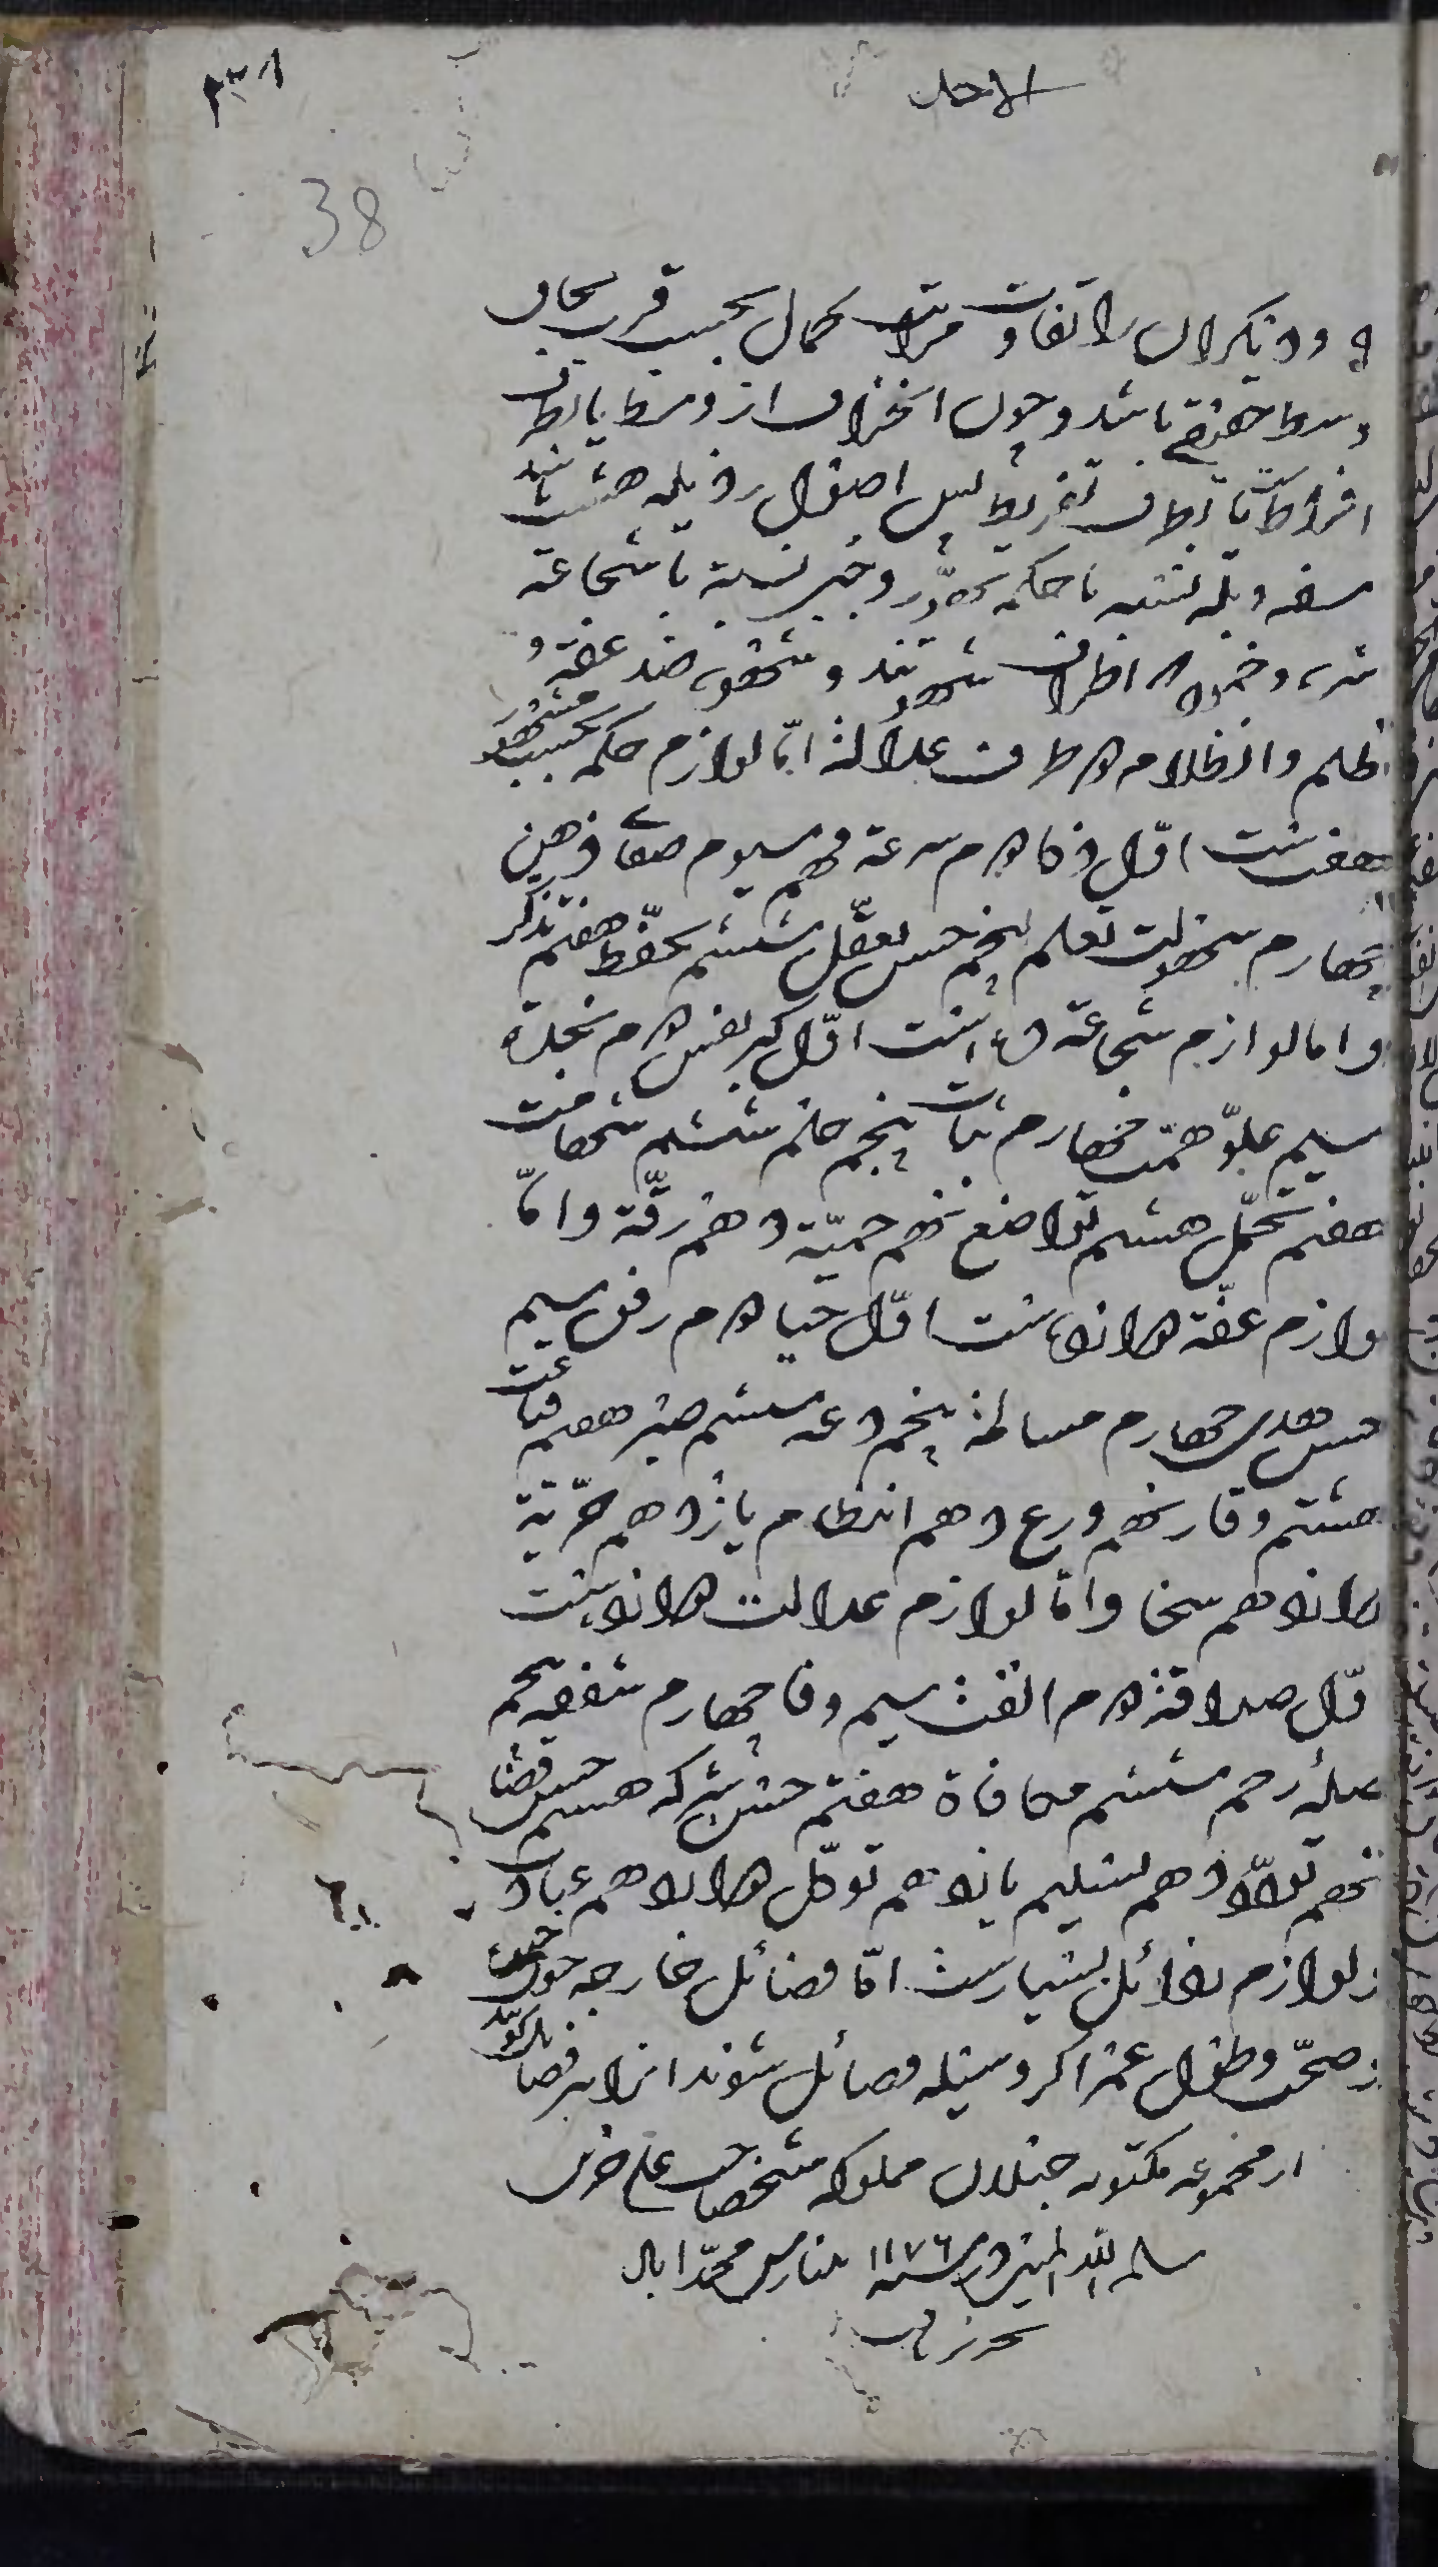 الاخلاق
٣٨
38
و دیگران را تفاوت مراتب کمال بحسب قرب بحاق
وسط حقیقی باشد و چون انحراف از وسط یا بطرف
افراطست یا بطرف تفریط پس اصول رذیله هشت باشند
سفه و بله نسبة با حکمة تهوّر و جبن نسبة با شجاعة
شره و خمود اطراف
ظلم و انظلام دو طرف عدالة امّا لوازم حکمة بحسب مشهور
هفتست اوّل ذکا دوم سرعة فهم سیوم صفای ذهن
چهارم سهولت تعلم پنجم حسن تعقّل ششم تحفّظ هفتم تذکر
و اما لوازم شجاعة ده است اوّل کبر نفس دوم نجدة
سیم علوّ همّت چهارم ثبات پنجم حلم ششم شهامت
هفتم تحمّل هشتم تواضع نهم حمیّة دهم رقّة و امّا
لوازم عفّة دوازده است اوّل حیا دوم رفق سیم
حسن هدی چهارم مسالمة پنجم دعه ششم صبر هفتم قناعت
هشتم وقار نهم ورع دهم انتظام یازدهم حرّیّة
دوازدهم سخا و امّا لوازم عدالت دوازده است
اوّل صداقة دوم الفت سیم وفا چهارم شفقه پنجم
صلهٔ رحم ششم مکافاة هفتم حسن شرکه هشتم حسن قضا
نهم تودّد دهم تسلیم یازدهم توکّل دوازدهم عبادت
و لوازم رذائل بسیارست امّا فضائل خارجه چون
و صحّت و طول عمر اگر وسیله فضائل شوند انرا نیز فضائل گویند
از مجموعه مکتوبه مملوکه علی حزین
سلمه الله در سنه ١١٧٦ بنارس محمّداباد